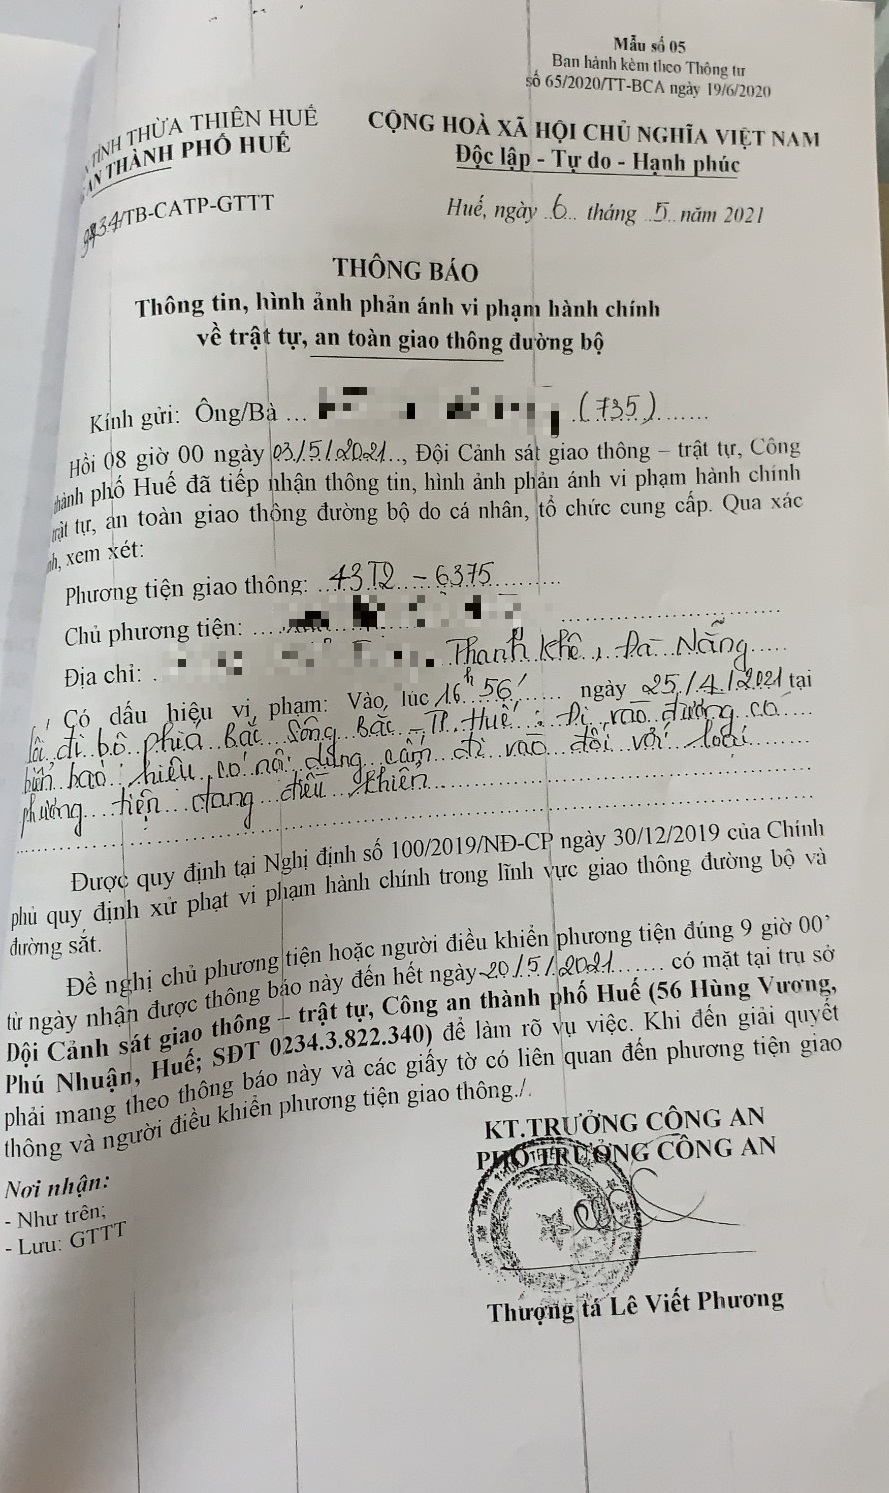 Mẫu số 05
Ban hành kèm theo Thông tư
số 65/2020/TT-BCA ngày 19/6/2020
TỈNH THỪA THIÊN HUẾ
AN THÀNH PHỐ HUẾ
/TB-CATP-GTTT
CỘNG HOÀ XÃ HỘI CHỦ NGHĨA VIỆT NAM
Độc lập - Tự do - Hạnh phúc
Huế, ngày 6 tháng 5 năm 2021
THÔNG BÁO
Thông tin, hình ảnh phản ánh vi phạm hành chính
về trật tự, an toàn giao thông đường bộ
Kính gửi: Ông/Bà ... (735)
Hồi 08 giờ 00 ngày 03/5/2021, Đội Cảnh sát giao thông – trật tự, Công
thành phố Huế đã tiếp nhận thông tin, hình ảnh phản ánh vi phạm hành chính
trật tự, an toàn giao thông đường bộ do cá nhân, tổ chức cung cấp. Qua xác
xem xét:
Phương tiện giao thông: 43T2 - 6375
Chủ phương tiện:
Địa chỉ: Thanh Khê, Đà Nẵng
Có dấu hiệu vi phạm: Vào lúc 16h 56' ngày 25/4/2021 tại
lối đi bộ phía Bắc Sông - TP. Huế: Đi vào đường có
biển báo hiệu có nội dung cấm đi vào đối với loại
phương tiện đang điều khiển
Được quy định tại Nghị định số 100/2019/NĐ-CP ngày 30/12/2019 của Chính
phủ quy định xử phạt vi phạm hành chính trong lĩnh vực giao thông đường bộ và
đường sắt.
Đề nghị chủ phương tiện hoặc người điều khiển phương tiện đúng 9 giờ 00'
từ ngày nhận được thông báo này đến hết ngày 20/5/2021 có mặt tại trụ sở
Đội Cảnh sát giao thông – trật tự, Công an thành phố Huế (56 Hùng Vương,
Phú Nhuận, Huế; SĐT 0234.3.822.340) để làm rõ vụ việc. Khi đến giải quyết
phải mang theo thông báo này và các giấy tờ có liên quan đến phương tiện giao
thông và người điều khiển phương tiện giao thông./.
KT.TRƯỞNG CÔNG AN
PHÓ TRƯỞNG CÔNG AN
Nơi nhận:
- Như trên;
- Lưu: GTTT
Thượng tá Lê Viết Phương